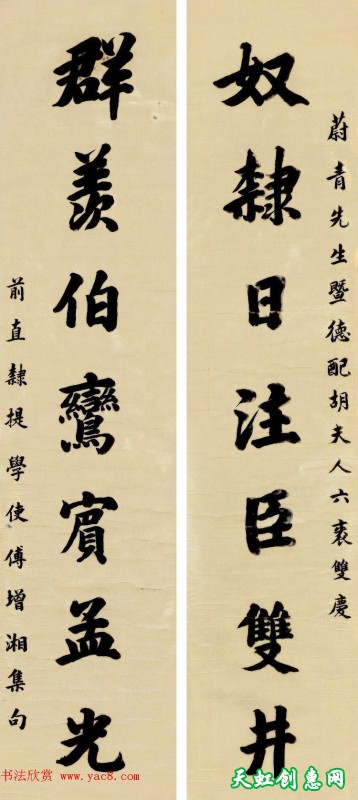 蔚青先生暨德配胡夫人六袠雙慶
奴隸日注臣雙井
群羨伯鸞賓孟光
前直隸提學使傅增湘集句
书法欣赏 www.yac8.com
天虹创惠网